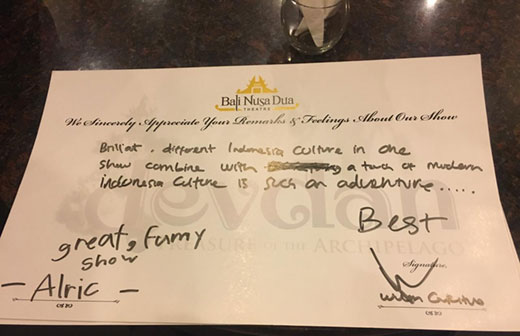 Bali Nusa Dua
THEATRE
We Sincerely Appreciate Your Remarks & Feelings About Our Show
Brillat. different Indonesia culture in one
show combine with a touch of modern
indonesia culture is such an adventure.....
devdan
TREASURE OF THE ARCHIPELAGO
Best
great, funny
show
Signature,
- Alric -